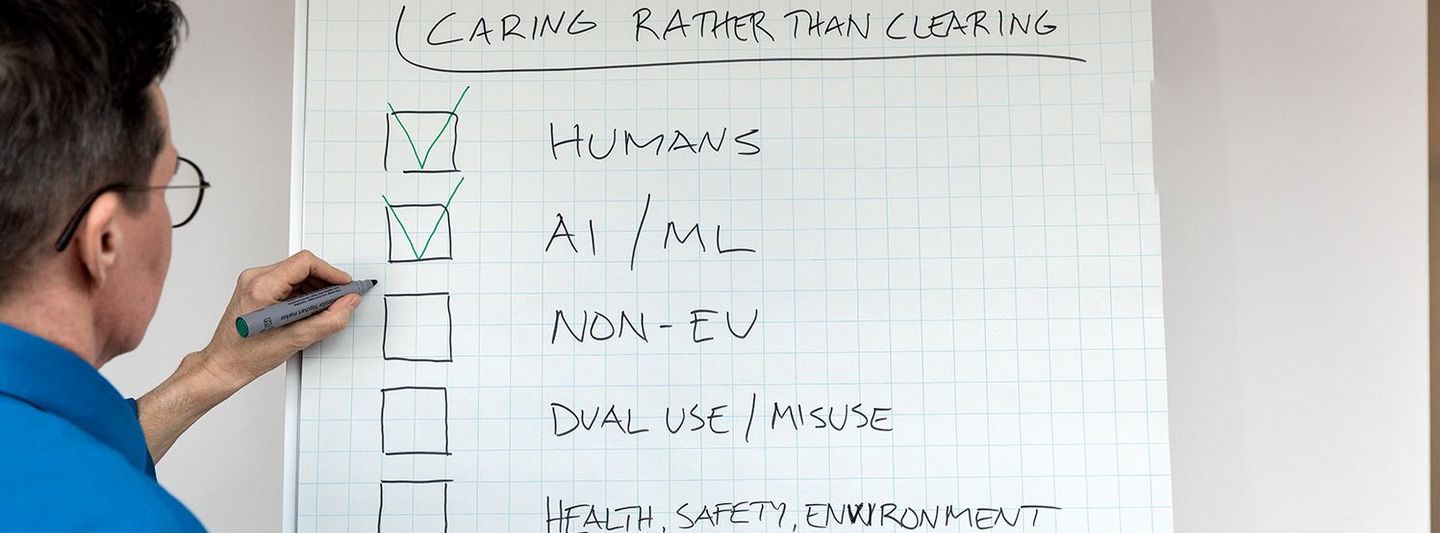 CARING RATHER THAN CLEARING
HUMANS
AI / ML
NON-EU
DUAL USE / MISUSE
HEALTH, SAFETY, ENVIRONMENT